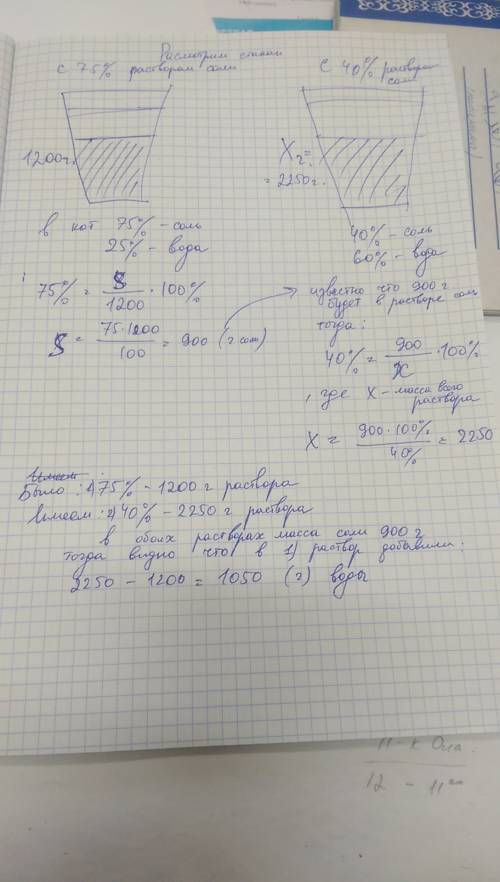 Расмотрим стакан
с 75% раствором соли
С 40% раствором соли
1200г.
X г =
= 2250г.
в кот 75% - соль
25% - вода
40% - соль
60% - вода
75% = S/1200 · 100%
S = 75·1200/100 = 900 (г соли)
известно что 900 г
будет в растворе соль
тогда:
40% = 900/X · 100%
, где X - масса всего
раствора
X = 900·100%/40% = 2250
Имеем:
Было: 1) 75% - 1200 г раствора
Имеем: 2) 40% - 2250 г раствора
в обоих растворах масса соли 900 г
тогда видно что в 1) раствор добавили:
2250 - 1200 = 1050 (г) воды
12 - 11